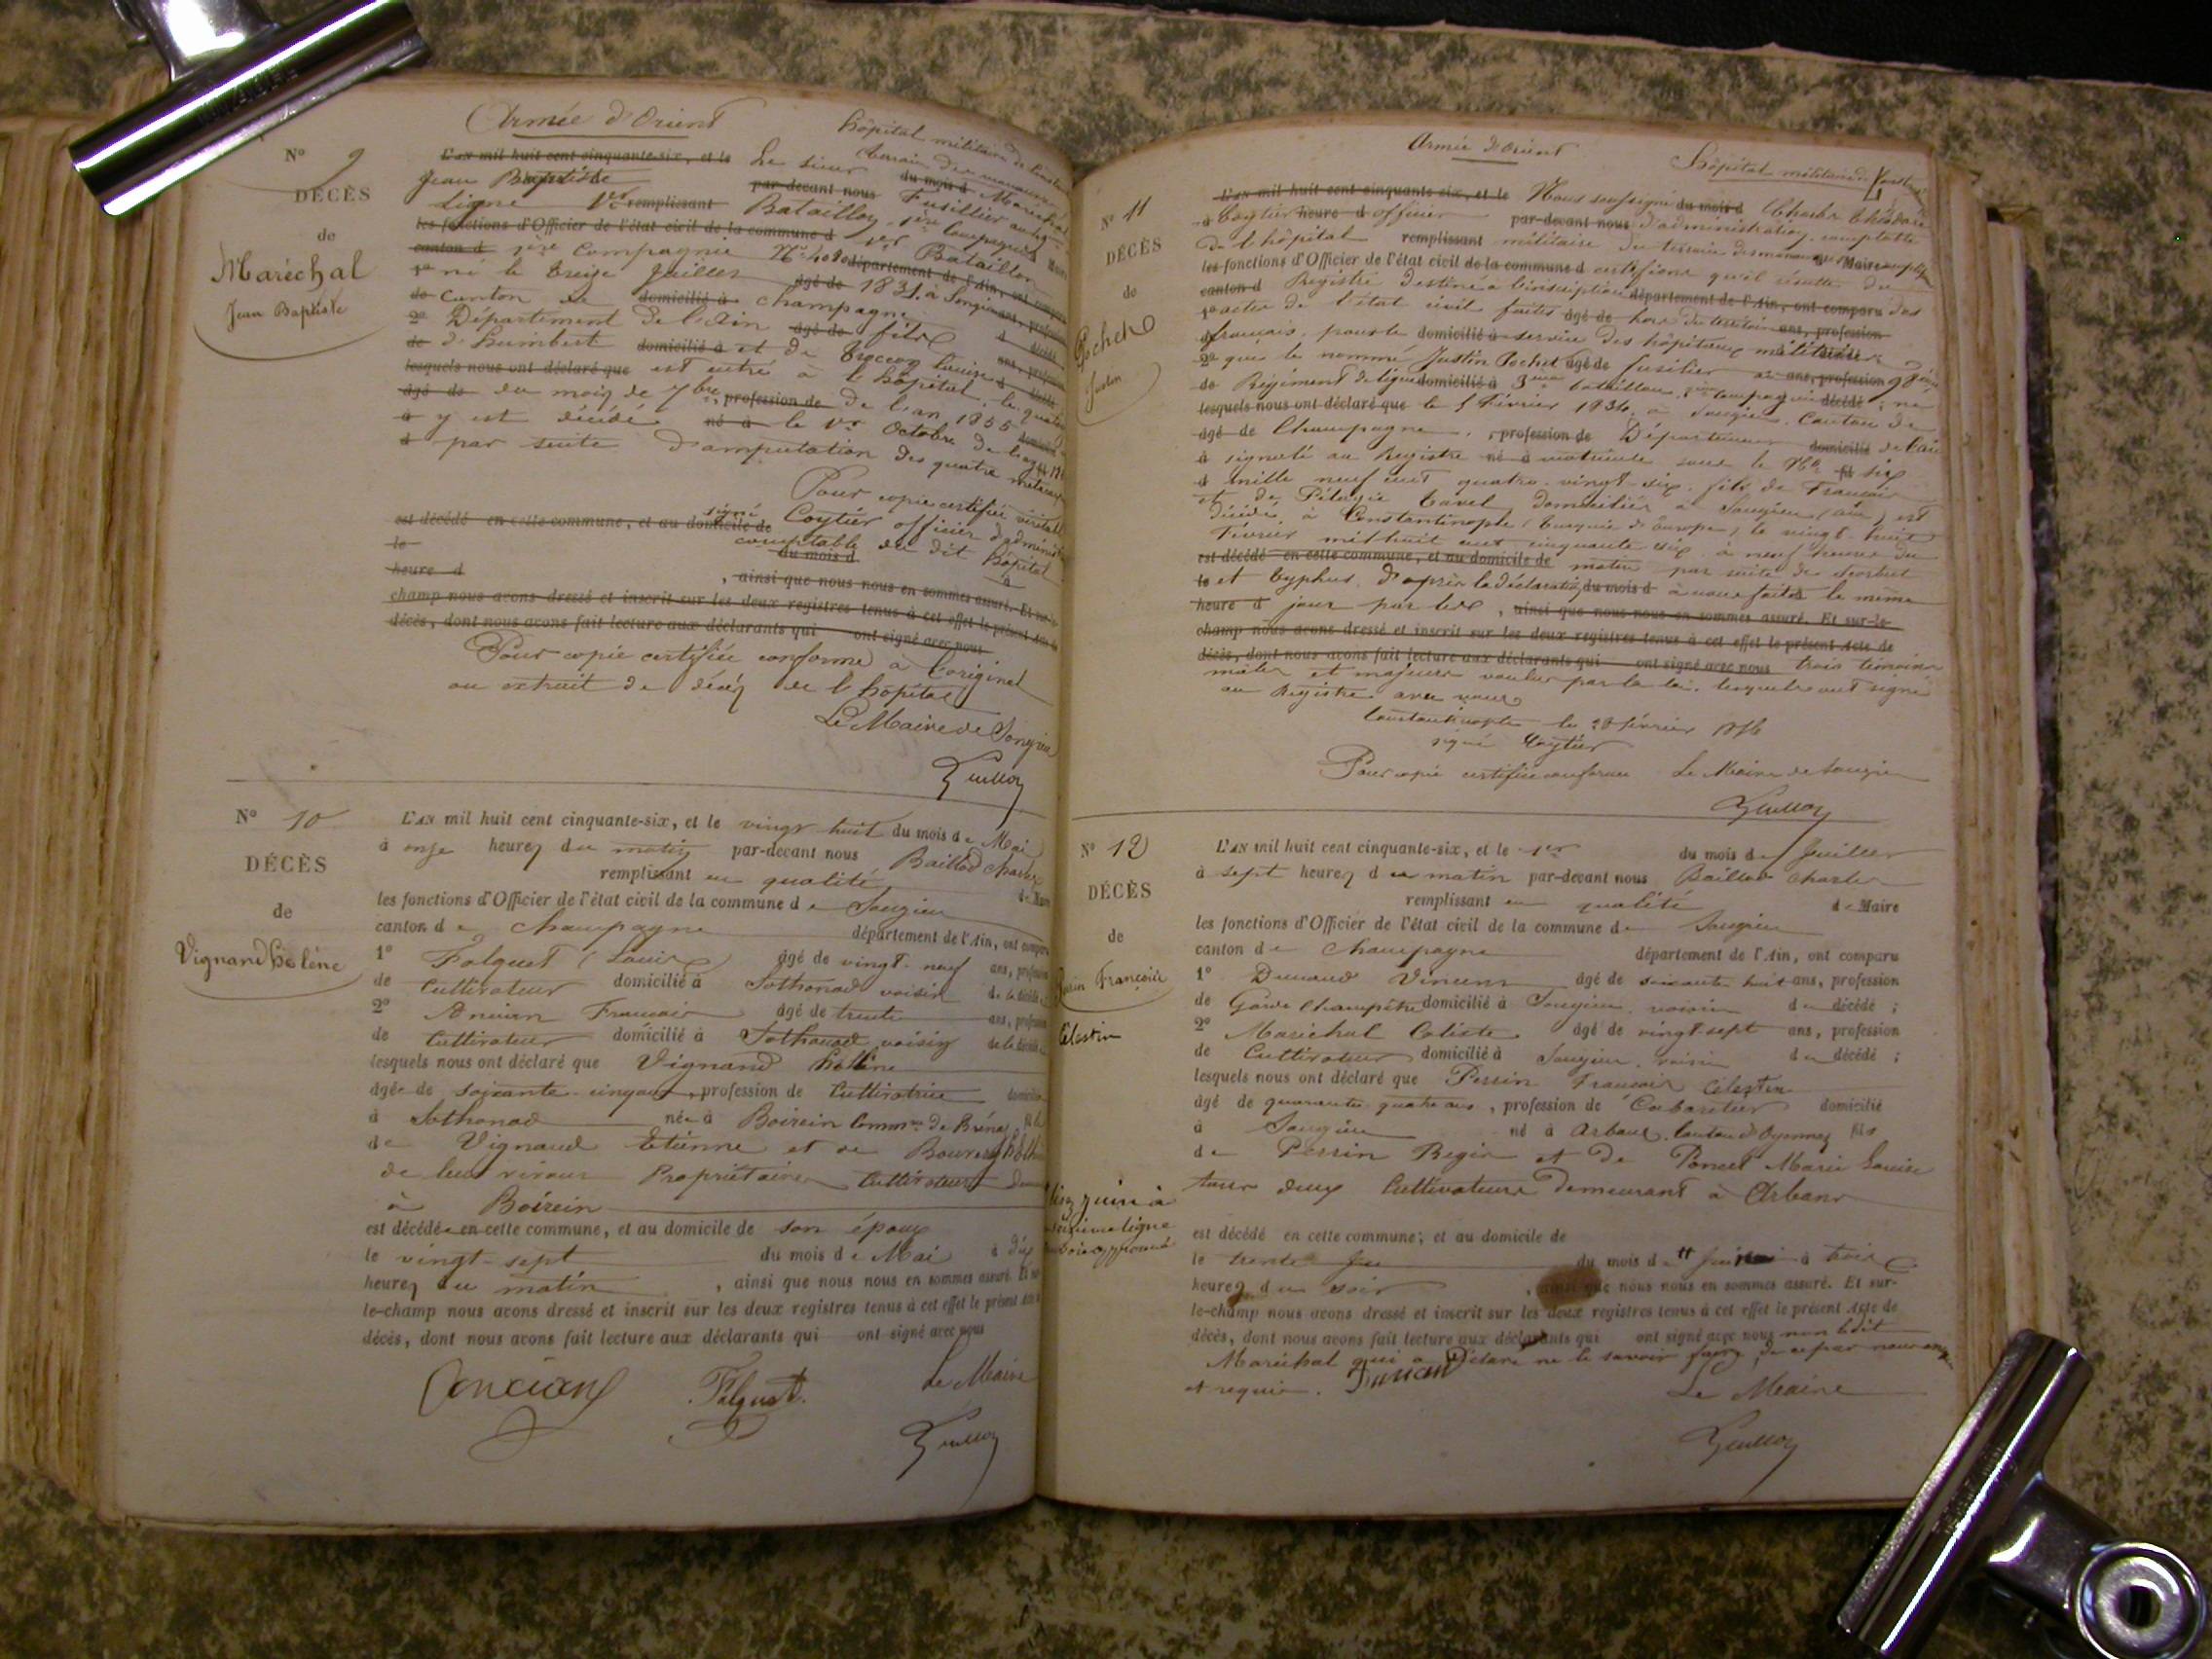 Armée d'Orient
hôpital militaire de
N° 9
DÉCÈS
de
Maréchal
Jean Baptiste
L'AN mil huit cent cinquante-six, et le Le sieur du mois d Maréchal
Jean Baptiste par-devant nous Fusillier au
Ligne 1er remplissant Bataillon, 1ère Compagnie
les fonctions d'Officier de l'état civil de la commune d 1er Bataillon
canton d 1ère Compagnie N° 4080 département de l'Ain, ont comparu
1° né le treize Juillet âgé de 1831, à Songieu ans, profession
de canton de domicilié à Champagne d décédé
2° Département de l'Ain âgé de fils ans, profession
de d'humbert domicilié à et de Louise d décédé
lesquels nous ont déclaré que est entré à l'hôpital, le
âgé de du mois de 7bre, profession de de l'an 1855
à y est décédé né à le 1er Octobre de
d par suite d'amputation des quatre
Pour copie certifiée véritable
signé
est décédé en cette commune, et au domicile de Coytier officier
le comptable du dit hôpital
du mois d à
heure d , ainsi que nous nous en sommes assuré. Et sur-le-
champ nous avons dressé et inscrit sur les deux registres tenus à cet effet le présent Acte de
décès, dont nous avons fait lecture aux déclarants qui ont signé avec nous
Pour copie certifiée conforme à l'original
ou extrait de décès de l'hôpital
Le Maire de Songieu
N° 10
DÉCÈS
de
Vignand hélène
L'AN mil huit cent cinquante-six, et le vingt huit du mois de Mai
à onze heures du matin par-devant nous Baillod Charles
remplissant en qualité de Maire
les fonctions d'Officier de l'état civil de la commune de Songieu
canton de Champagne département de l'Ain, ont comparu
1° Folquet (Louis) âgé de vingt-neuf ans, profession
de Cultivateur domicilié à Sothonod voisin de la décédée
2° Ancian François âgé de trente ans, profession
de Cultivateur domicilié à Sothonod voisin de la décédée
lesquels nous ont déclaré que Vignand hélène
âgée de soixante-cinq ans, profession de Cultivatrice domiciliée
à Sothonod née à Boirein Commne de Brénaz fille
de Vignand Etienne et de
de leur vivant Propriétaires Cultivateurs
à Boirein
est décédée en cette commune, et au domicile de son époux
le vingt-sept du mois de Mai à dix
heures du matin , ainsi que nous nous en sommes assuré. Et sur-
le-champ nous avons dressé et inscrit sur les deux registres tenus à cet effet le présent Acte de
décès, dont nous avons fait lecture aux déclarants qui ont signé avec nous
Ancian Folquet Le Maire
Armée d'Orient
Hôpital militaire de
N° 11
DÉCÈS
de
Pochet
Justin
L'AN mil huit cent cinquante-six, et le Nous soussigné du mois d Charles Théodore
à Coytier heure d officier par-devant nous d'administration, comptable
de l'hôpital remplissant militaire du terrain des manoeuvres Maire
les fonctions d'Officier de l'état civil de la commune d certifions qu'il résulte du
canton d Registre destiné à l'inscription département de l'Ain, ont comparu des
1° actes de l'état civil faits âgé de hors du territoire ans, profession
français, pour le domicilié à service des hôpitaux militaires;
2° que le nommé Justin Pochet âgé de fusilier au ans, profession 98ème
de Régiment de ligne domicilié à 3ème bataillon, Compagnie décédé; né
lesquels nous ont déclaré que le 5 Février 1834, à Songieu, Canton de
âgé de Champagne, profession de Département domicilié de l'Ain
à signalé au Registre né à matricule sous le N° fil six
d mille neuf cent quatre-vingt-six, fils de François
et de Pélagie Cavel, domiciliés à Songieu (Ain) est
décédé à Constantinople (Turquie d'Europe) le vingt-huit
Février mil huit cent cinquante six à neuf heures du
est décédé en cette commune, et au domicile de matin par suite de scorbut
le et typhus, d'après la déclaration du mois d à nous faite le même
heure d jour par les , ainsi que nous nous en sommes assuré. Et sur-le-
champ nous avons dressé et inscrit sur les deux registres tenus à cet effet le présent Acte de
décès, dont nous avons fait lecture aux déclarants qui ont signé avec nous trois témoins
mâles et majeurs voulus par la loi, lesquels ont signé
au Registre avec nous
Constantinople le 28 février 1856
signé Coytier
Pour copie certifiée conforme Le Maire de Songieu
N° 12
DÉCÈS
de
Perrin François
Célestin
L'AN mil huit cent cinquante-six, et le 1er du mois de Juillet
à sept heures du matin par-devant nous Baillod Charles
remplissant en qualité de Maire
les fonctions d'Officier de l'état civil de la commune de Songieu
canton de Champagne département de l'Ain, ont comparu
1° Dunand Vincent âgé de soixante huit ans, profession
de Garde Champêtre domicilié à Songieu, voisin du décédé;
2° Maréchal Calixte âgé de vingt-sept ans, profession
de Cultivateur domicilié à Songieu, voisin du décédé;
lesquels nous ont déclaré que Perrin François Célestin
âgé de quarante quatre ans, profession de Cabaretier domicilié
à Songieu né à Arbent, Canton d'Oyonnax fils
de Perrin Régis et de Poncet Marie Louise
tous deux Cultivateurs demeurant à Arbent
juin à
ligne
approuvé
est décédé en cette commune; et au domicile de
le trente du mois de Juin à trois
heures du soir , ainsi que nous nous en sommes assuré. Et sur-
le-champ nous avons dressé et inscrit sur les deux registres tenus à cet effet le présent Acte de
décès, dont nous avons fait lecture aux déclarants qui ont signé avec nous non ledit
Maréchal qui a déclaré ne le savoir faire, de ce par nous enquis
et requis. Dunand Le Maire